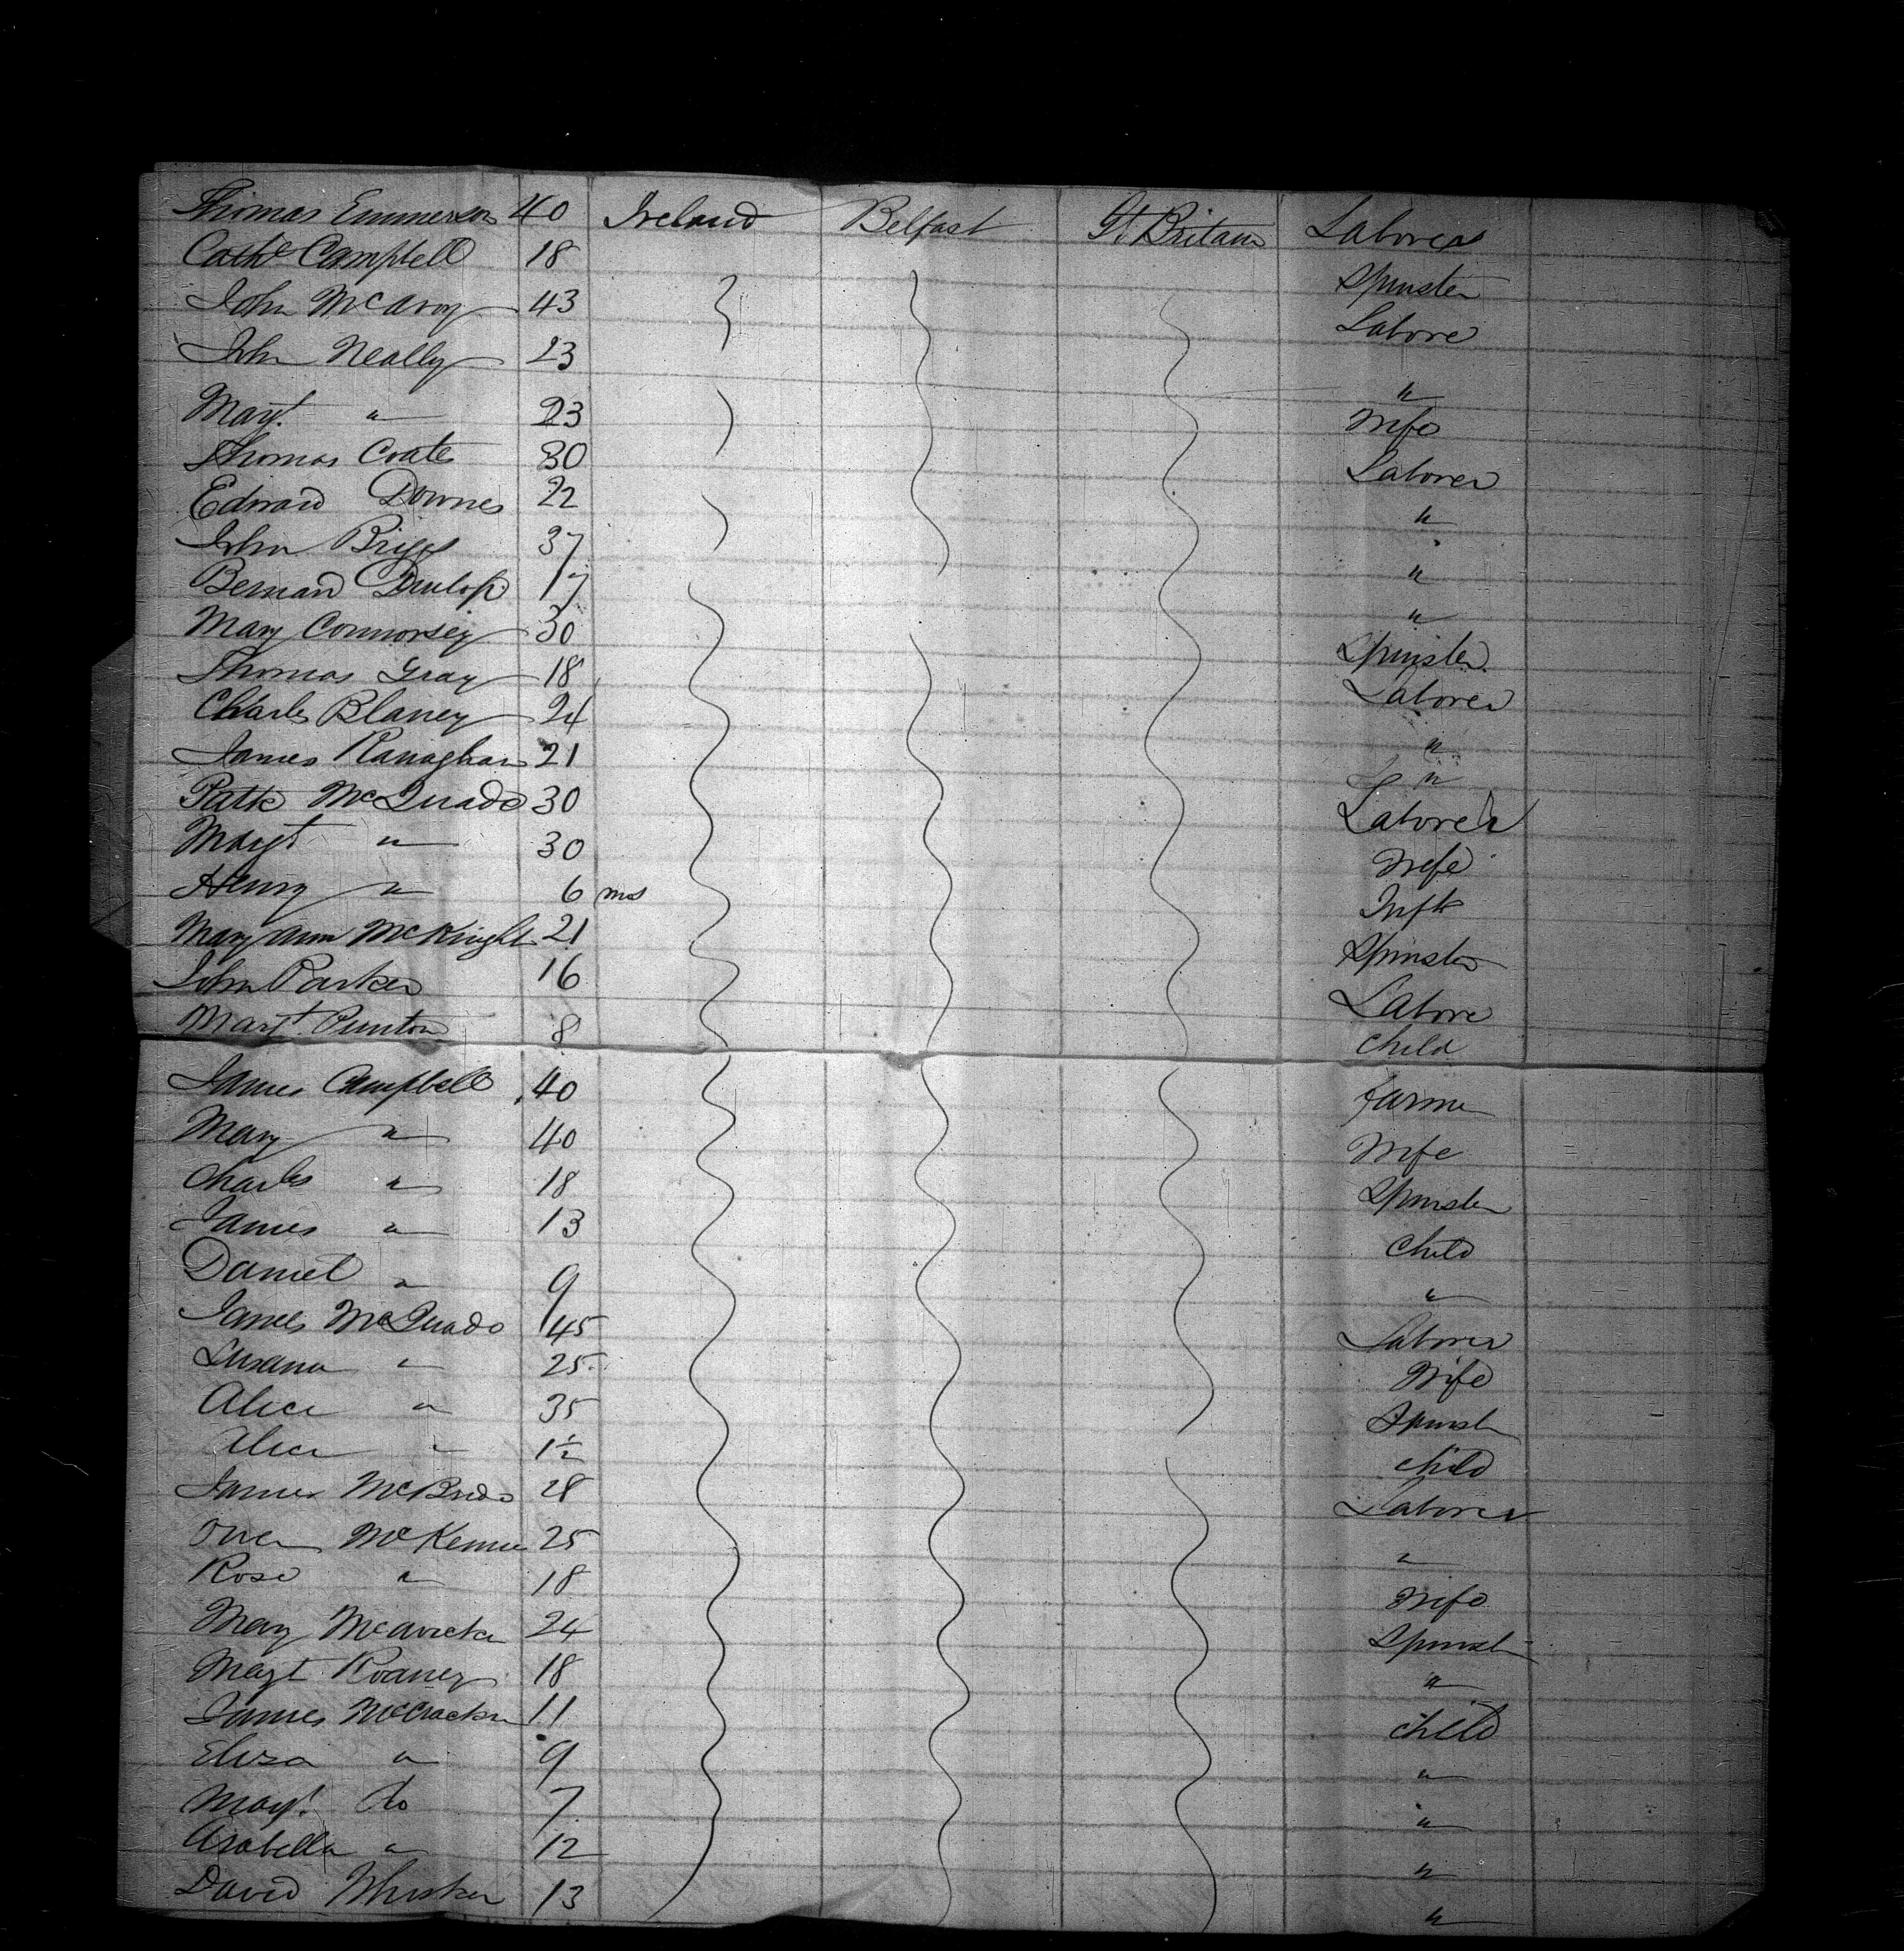 Thomas Emmerson 40 Ireland Belfast Gt. Britain Laborer
Cathe Campbell 18 Spinster
John McAvoy 43 Labore
John Neally 23 "
Margt. " 23 Wife
Thomas Coate 30 Laborer
Edward Downes 22 "
John Briggs 37 "
Bernard Dunlop 17 "
Mary Connorsey 30 Spinster
Thomas Gray 18 Laborer
Charles Blaney 24 "
James Ranaghan 21 "
Patk McQuade 30 Laborer
Margt " 30 Wife
Henry " 6 ms Inft
Mary Ann McKnight 21 Spinster
John Parker 16 Labore
Margt 8 Child
James Campbell 40 Farmer
Mary " 40 Wife
Charles " 18 Spinster
James " 13 Child
Daniel " 9 "
James McQuade 45 Laborer
Susana " 25 Wife
Alice " 35 Spinst
Alice " 1½ child
James McBride 28 Laborer
Owen McKenna 25 "
Rose " 18 Wife
Mary 24 Spinst
Magt Roaney 18 "
James McCracken 11 child
Eliza " 9 "
Magt. do 7 "
Arabella " 12 "
David 13 "